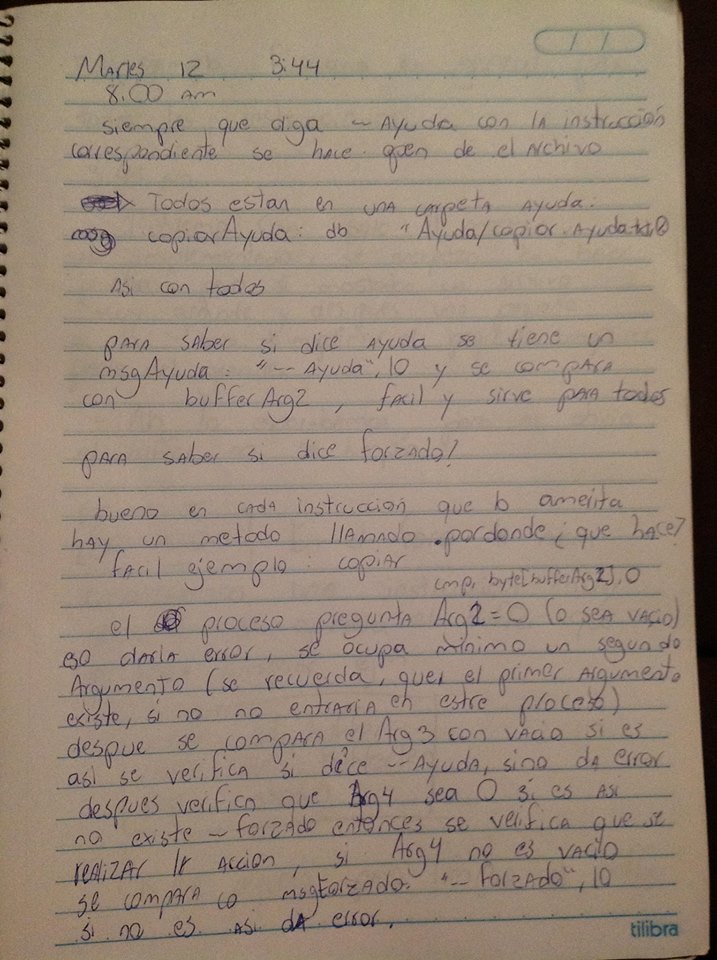 Martes 12 3:44
8:00 am
siempre que diga --Ayuda con la instrucción
correspondiente se hace open de el archivo
Todos estan en una carpeta ayuda.
copiarAyuda: db "Ayuda/copiar.Ayuda
Asi con todos
para saber si dice ayuda se tiene un
msgAyuda: "--Ayuda",10 y se compara
con bufferArg2, facil y sirve para todos
para saber si dice forzado!
bueno en cada instruccion que lo amerita
hay un metodo llamado .pordonde ¿que hace?
facil ejemplo: copiar
cmp, byte[bufferArg2],0
el proceso pregunta Arg2=0 (o sea vacio)
eso daria error, se ocupa minimo un segundo
Argumento (se recuerda, que el primer argumento
existe, si no no entraria en estre proceso)
despue se compara el Arg3 con vacio si es
asi se verifica si dice --Ayuda, sino da error
despues verifica que Arg4 sea 0 si es asi
no existe --forzado entonces se verifica que se
realizar la accion, si Arg4 no es vacio
se compara co msgForzado: "--Forzado",10
si no es asi da error.
tilibra